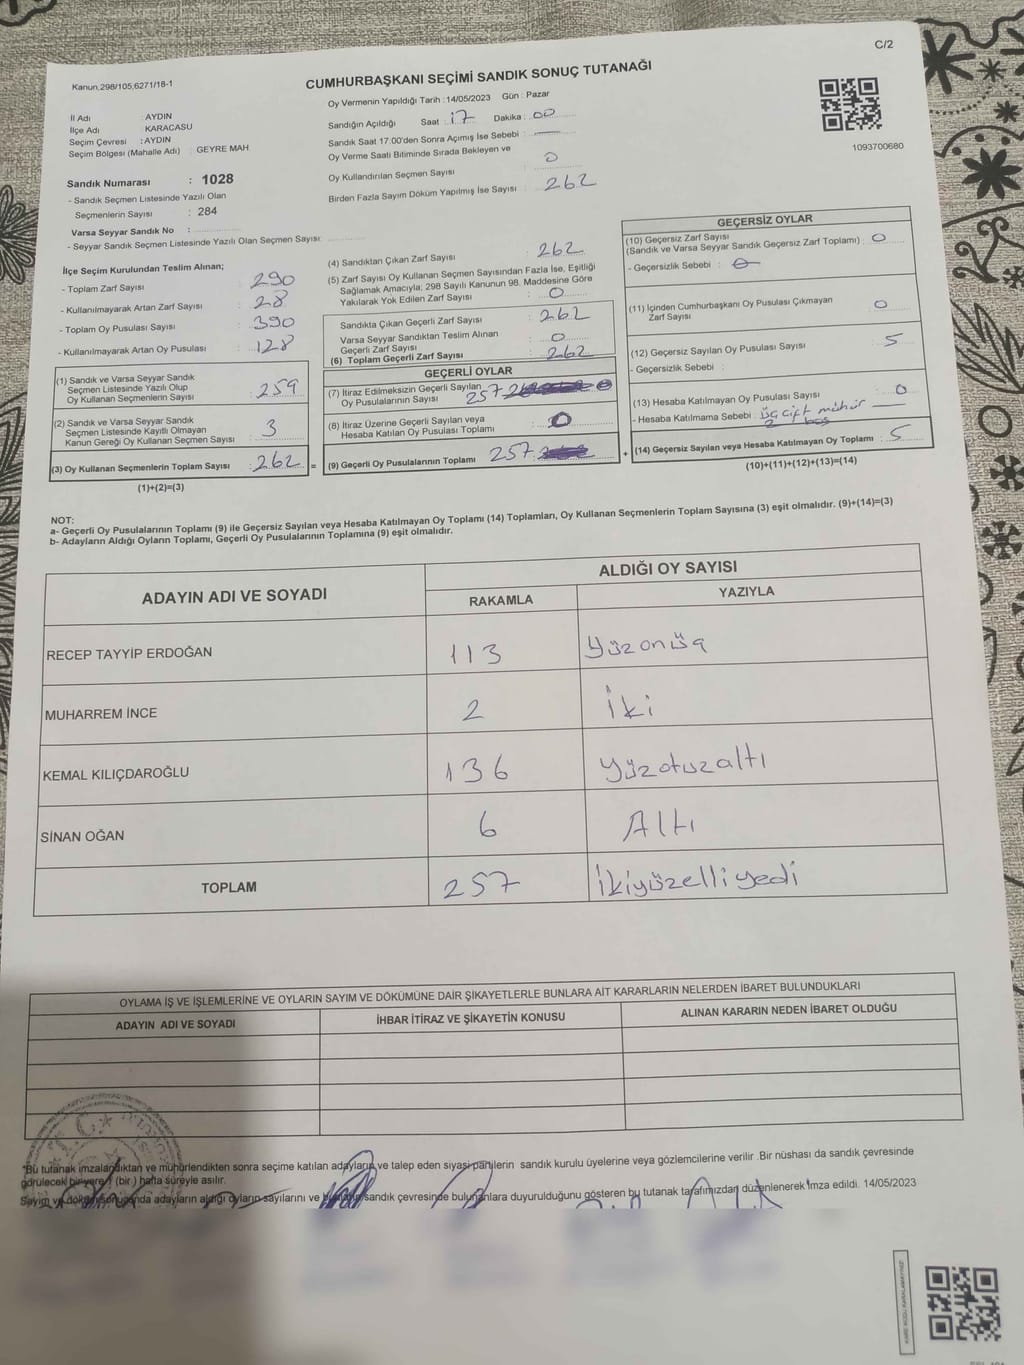 C/2
Kanun,298/105,6271/18-1
CUMHURBAŞKANI SEÇİMİ SANDIK SONUÇ TUTANAĞI
İl Adı : AYDIN
İlçe Adı KARACASU
Seçim Çevresi : AYDIN
Seçim Bölgesi (Mahalle Adı) : GEYRE MAH
Sandık Numarası : 1028
- Sandık Seçmen Listesinde Yazılı Olan
Seçmenlerin Sayısı : 284
Varsa Seyyar Sandık No :
- Seyyar Sandık Seçmen Listesinde Yazılı Olan Seçmen Sayısı:
Oy Vermenin Yapıldığı Tarih : 14/05/2023 Gün : Pazar
Sandığın Açıldığı Saat : 17 Dakika : 00
Sandık Saat 17:00'den Sonra Açımış İse Sebebi :
Oy Verme Saati Bitiminde Sırada Bekleyen ve
Oy Kullandırılan Seçmen Sayısı : 0
Birden Fazla Sayım Döküm Yapılmış İse Sayısı : 262
1093700680
İlçe Seçim Kurulundan Teslim Alınan;
- Toplam Zarf Sayısı : 290
- Kullanılmayarak Artan Zarf Sayısı : 28
- Toplam Oy Pusulası Sayısı : 390
- Kullanılmayarak Artan Oy Pusulası : 128
(1) Sandık ve Varsa Seyyar Sandık
Seçmen Listesinde Yazılı Olup
Oy Kullanan Seçmenlerin Sayısı : 259
(2) Sandık ve Varsa Seyyar Sandık
Seçmen Listesinde Kayıtlı Olmayan
Kanun Gereği Oy Kullanan Seçmen Sayısı : 3
(3) Oy Kullanan Seçmenlerin Toplam Sayısı : 262 =
(1)+(2)=(3)
(4) Sandıktan Çıkan Zarf Sayısı : 262
(5) Zarf Sayısı Oy Kullanan Seçmen Sayısından Fazla İse, Eşitliği
Sağlamak Amacıyla; 298 Sayılı Kanunun 98. Maddesine Göre
Yakılarak Yok Edilen Zarf Sayısı : 0
Sandıkta Çıkan Geçerli Zarf Sayısı : 262
Varsa Seyyar Sandıktan Teslim Alınan
Geçerli Zarf Sayısı : 0
(6) Toplam Geçerli Zarf Sayısı : 262
GEÇERLİ OYLAR
(7) İtiraz Edilmeksizin Geçerli Sayılan
Oy Pusulalarının Sayısı 257
(8) İtiraz Üzerine Geçerli Sayılan veya
Hesaba Katılan Oy Pusulası Toplamı : 0
(9) Geçerli Oy Pusulalarının Toplamı 257 +
GEÇERSİZ OYLAR
(10) Geçersiz Zarf Sayısı
(Sandık ve Varsa Seyyar Sandık Geçersiz Zarf Toplamı) : 0
- Geçersizlik Sebebi :
(11) İçinden Cumhurbaşkanı Oy Pusulası Çıkmayan
Zarf Sayısı : 0
(12) Geçersiz Sayılan Oy Pusulası Sayısı : 5
- Geçersizlik Sebebi :
(13) Hesaba Katılmayan Oy Pusulası Sayısı : 0
- Hesaba Katılmama Sebebi : üç çift mühür
2 boş
(14) Geçersiz Sayılan veya Hesaba Katılmayan Oy Toplamı : 5
(10)+(11)+(12)+(13)=(14)
NOT:
a- Geçerli Oy Pusulalarının Toplamı (9) ile Geçersiz Sayılan veya Hesaba Katılmayan Oy Toplamı (14) Toplamları, Oy Kullanan Seçmenlerin Toplam Sayısına (3) eşit olmalıdır. (9)+(14)=(3)
b- Adayların Aldığı Oyların Toplamı, Geçerli Oy Pusulalarının Toplamına (9) eşit olmalıdır.
ADAYIN ADI VE SOYADI
ALDIĞI OY SAYISI
RAKAMLA YAZIYLA
RECEP TAYYİP ERDOĞAN 113 Yüzonüç
MUHARREM İNCE 2 İki
KEMAL KILIÇDAROĞLU 136 Yüzotuzaltı
SİNAN OĞAN 6 Altı
TOPLAM 257 İkiyüzelliyedi
OYLAMA İŞ VE İŞLEMLERİNE VE OYLARIN SAYIM VE DÖKÜMÜNE DAİR ŞİKAYETLERLE BUNLARA AİT KARARLARIN NELERDEN İBARET BULUNDUKLARI
ADAYIN ADI VE SOYADI İHBAR İTİRAZ VE ŞİKAYETİN KONUSU ALINAN KARARIN NEDEN İBARET OLDUĞU
*Bu tutanak imzalandıktan ve mühürlendikten sonra seçime katılan adayların ve talep eden siyasi partilerin sandık kurulu üyelerine veya gözlemcilerine verilir .Bir nüshası da sandık çevresinde
görülecek bir yere 1 (bir ) hafta süreyle asılır.
Sayım ve döküm sonucunda adayların aldığı oyların sayılarını ve bunların sandık çevresinde bulunanlara duyurulduğunu gösteren bu tutanak tarafımızdan düzenlenerek imza edildi. 14/05/2023